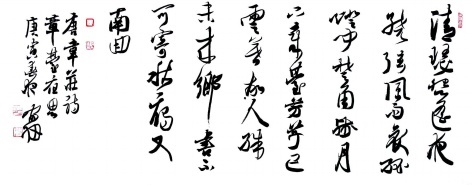 清瑟怨遥夜
繞弦風雨哀孤
燈聞楚角殘月
下章臺芳草已
雲暮故人殊
未來鄉書不
可寄秋雁又
南回
唐韋莊詩
章臺夜思
庚寅